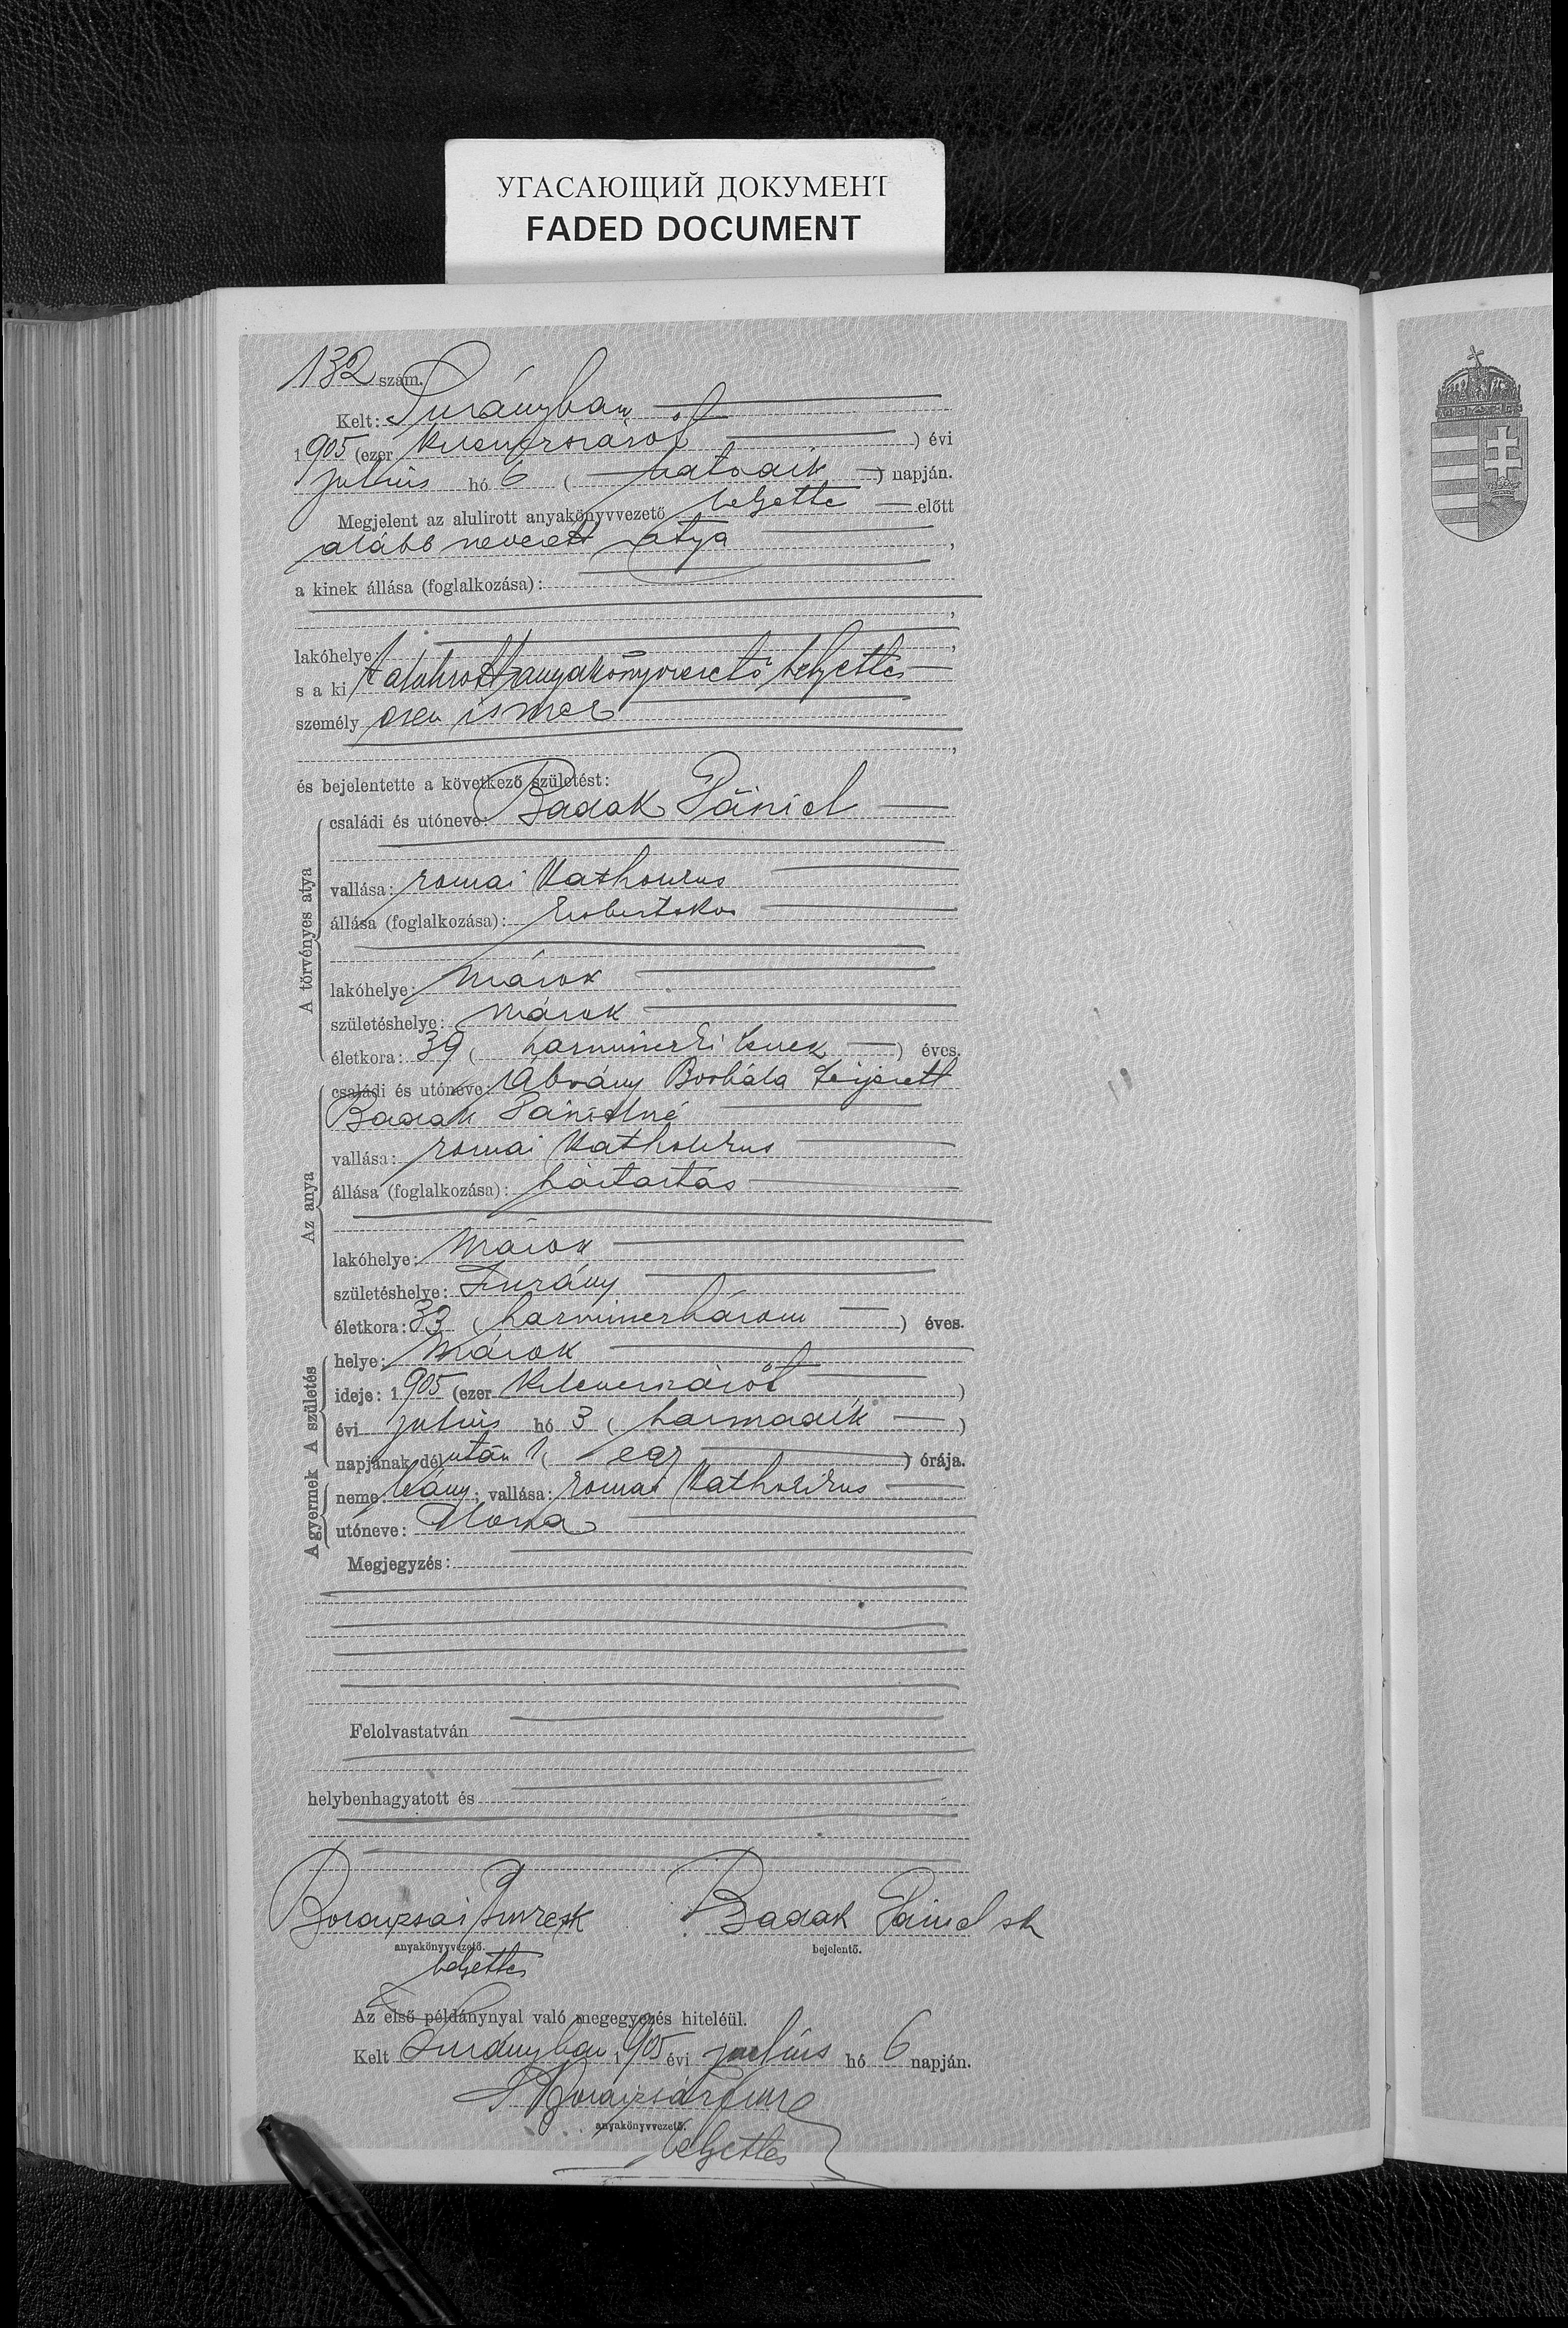 УГАСАЮЩИЙ ДОКУМЕНТ
FADED DOCUMENT
132 szám.
Kelt: Surányban
1905 (ezer kilencszázöt) évi
julius hó 6 (hatodik) napján.
Megjelent az alulirott anyakönyvvezető helyette előtt
alább nevezett atya,
a kinek állása (foglalkozása):
,
lakóhelye ,
s a ki t alulirott anyakönyvvezető helyettes
személyesen ismer
,
és bejelentette a következő születést:
A törvényes atya
családi és utóneve: Badak Dániel
vallása: romai katholikus
állása (foglalkozása):
lakóhelye: Márok
születéshelye: Márok
életkora: 39 (harminczkilencz) éves.
Az anya
családi és utóneve: Ábrány Borbála férjezett
Badak Dánielné
vallása: romai katholikus
állása (foglalkozása): háztartás
lakóhelye: Márok
születéshelye: Surány
életkora: 33 (harminczhárom) éves.
A születés
helye: Márok
ideje: 1905 (ezer kilenczszázöt)
évi julius hó 3 (harmadik)
napjának délután 1 (egy) órája.
A gyermek
neme: leány; vallása: romai katholikus
utóneve: Ilona
Megjegyzés:
Felolvastatván
helybenhagyatott és
Imre sk Badak Dániel sk
anyakönyvvezető. bejelentő.
helyettes
Az első példánynyal való megegyezés hiteléül.
Kelt Surányban 1905 évi julius hó 6 napján.
Imre
anyakönyvvezető.
helyettes